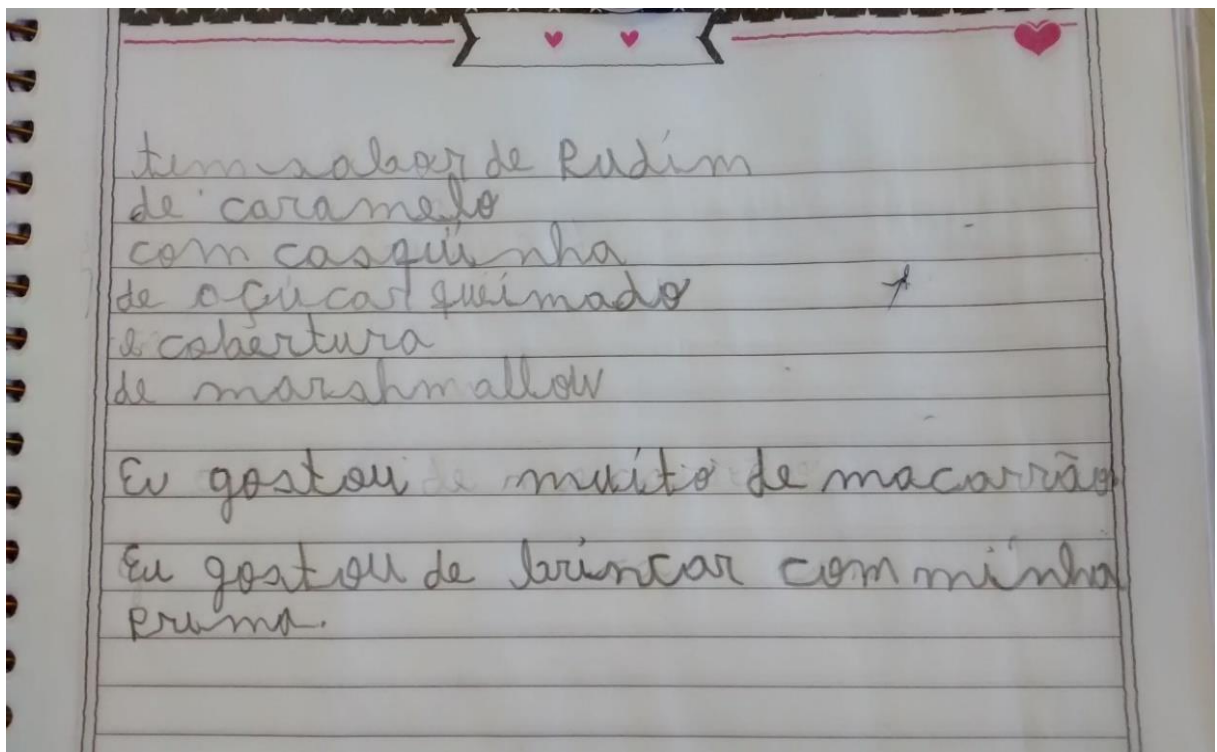 tem sabor de Pudim
de caramelo
com casquinha
de açúcar queimado
e cobertura
de marshmallow
Eu gostou de muito de macarrão
Eu gostou de brincar com minha
Prima.